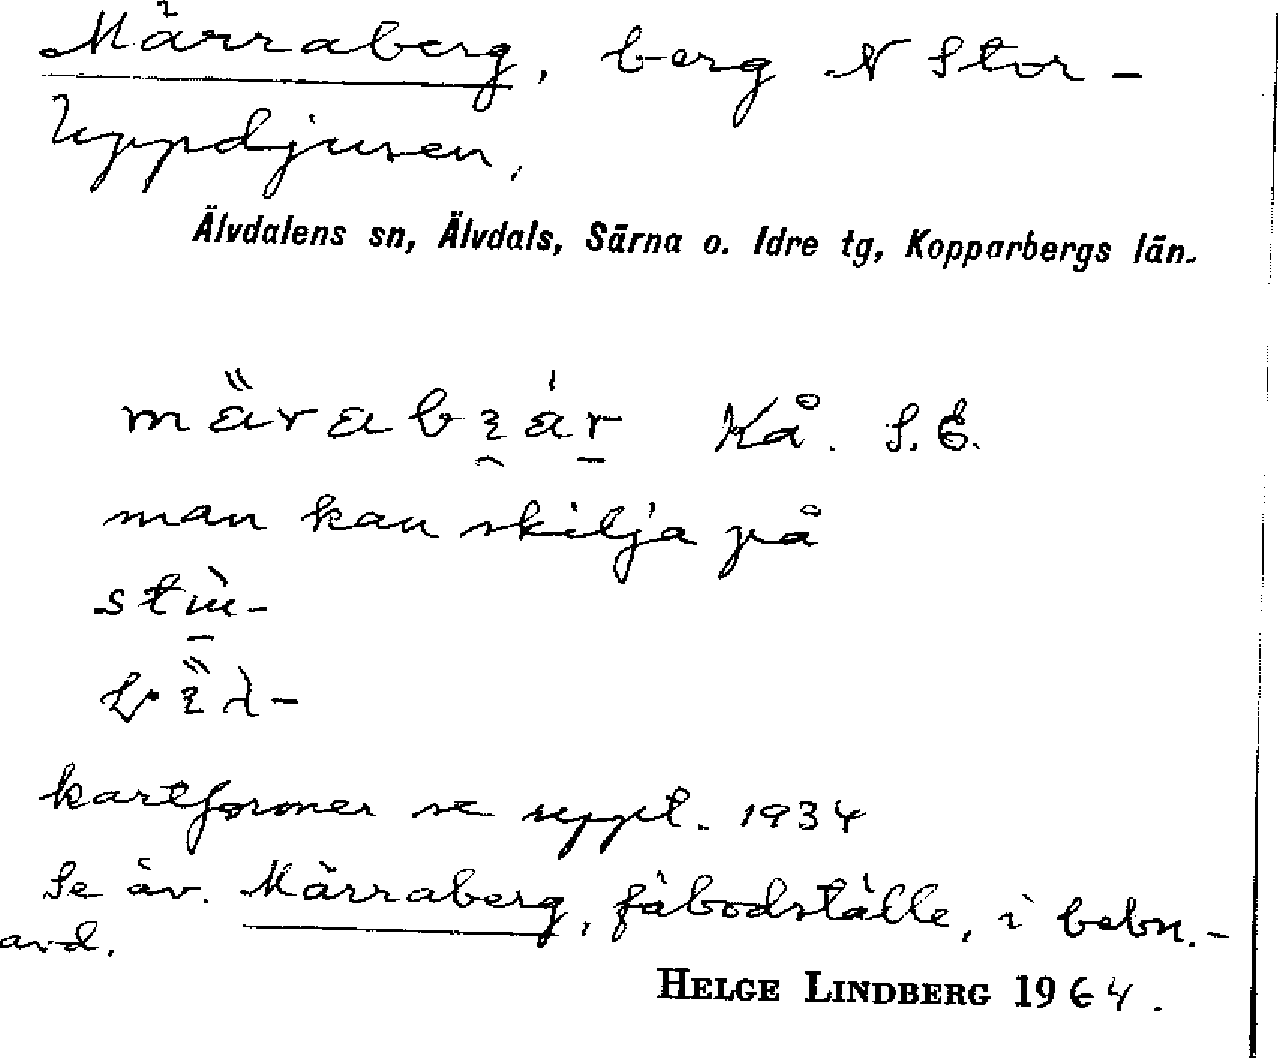 Märraberg, berg N Stor-
Uppdjusen.
Älvdalens sn, Älvdals, Särna o. Idre tg, Kopparbergs län.
Kå. S.E.
man kan skilja på
kartformer se uppt. 1934
Se äv. Märraberg, fäbodställe, i bebn.-
avd.
HELGE LINDBERG 1964.